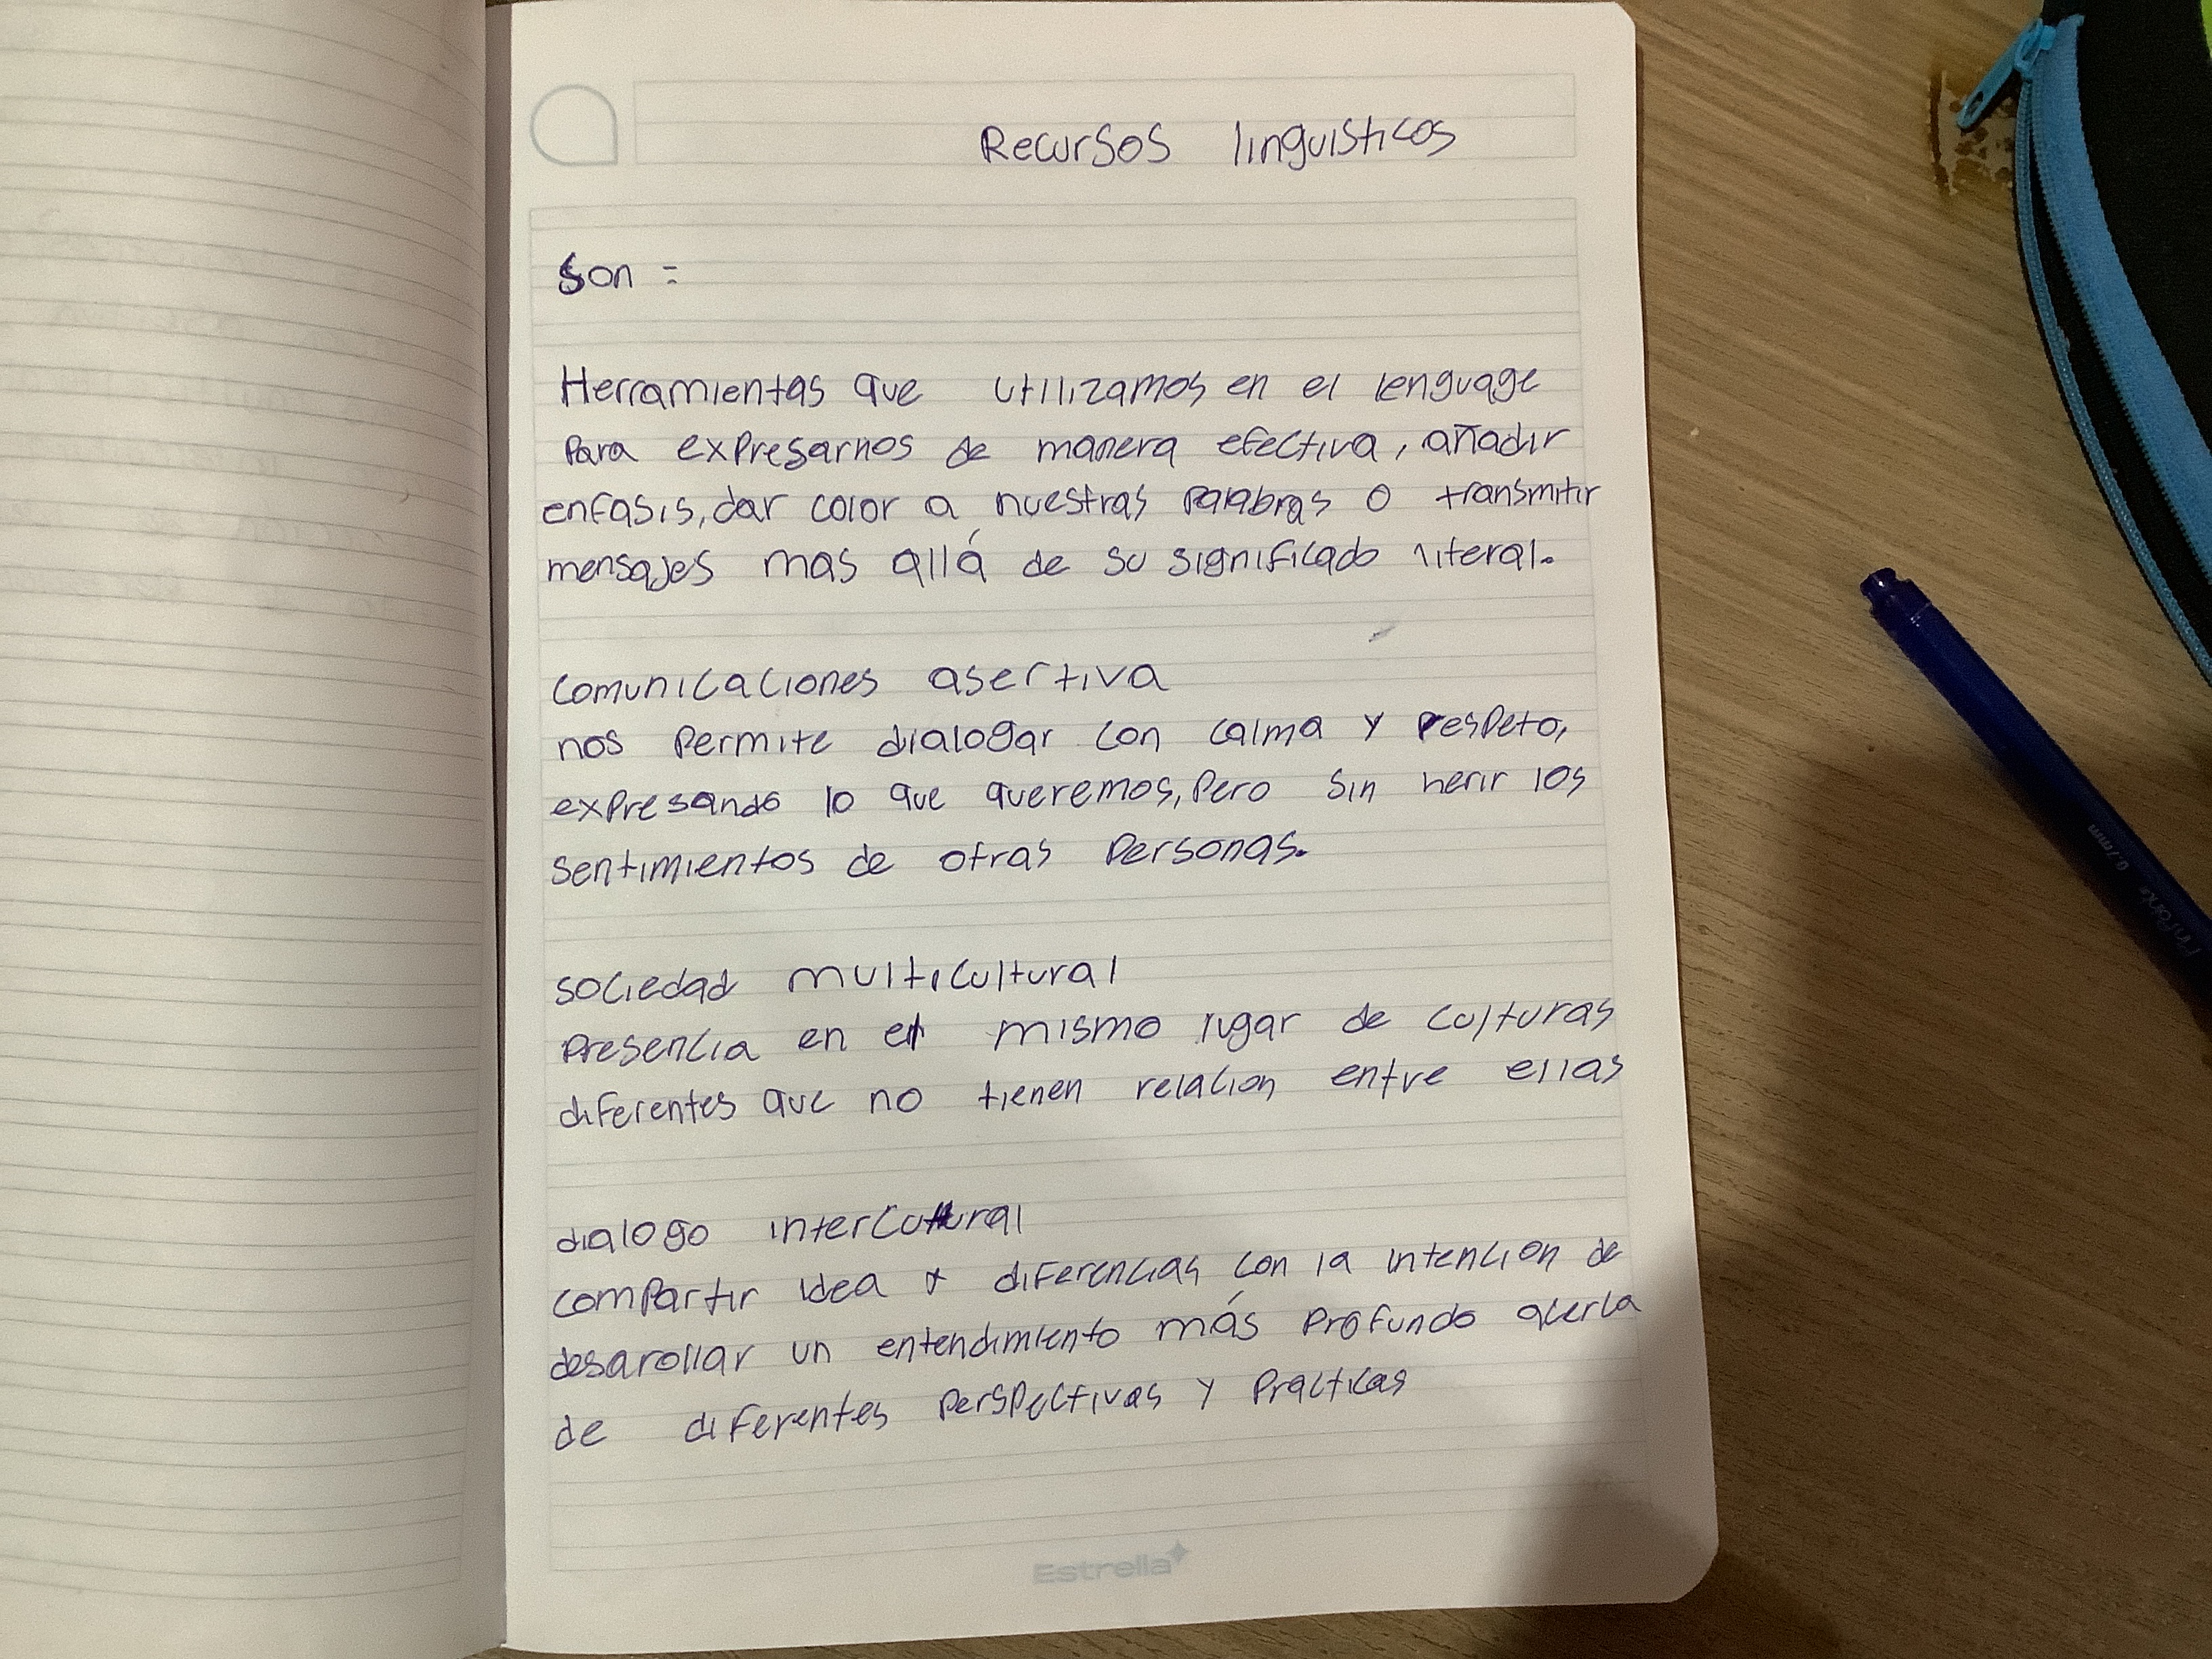 Recursos linguisticos
Son =
Herramientas que utilizamos en el lenguage
Para expresarnos de manera efectiva, añadir
enfasis, dar color a nuestras palabras o transmitir
mensajes mas allá de su significado literal.
comunicaciones asertiva
nos permite dialogar con calma y respeto,
expresando lo que queremos, pero sin herir los
sentimientos de otras personas.
sociedad multicultural
presencia en el mismo lugar de culturas
diferentes que no tienen relacion entre ellas
dialogo intercultural
compartir idea y diferencias con la intencion de
desarollar un entendimiento más profundo acerca
de diferentes perspectivas y practicas
Estrella